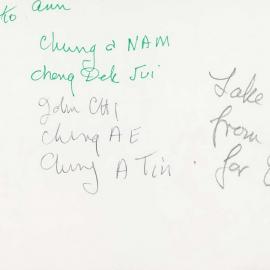 to ann
Chung A NAM
Cheng Dek Jui
John CHI
Chung AE
Chung A Tin.
Take
from
for